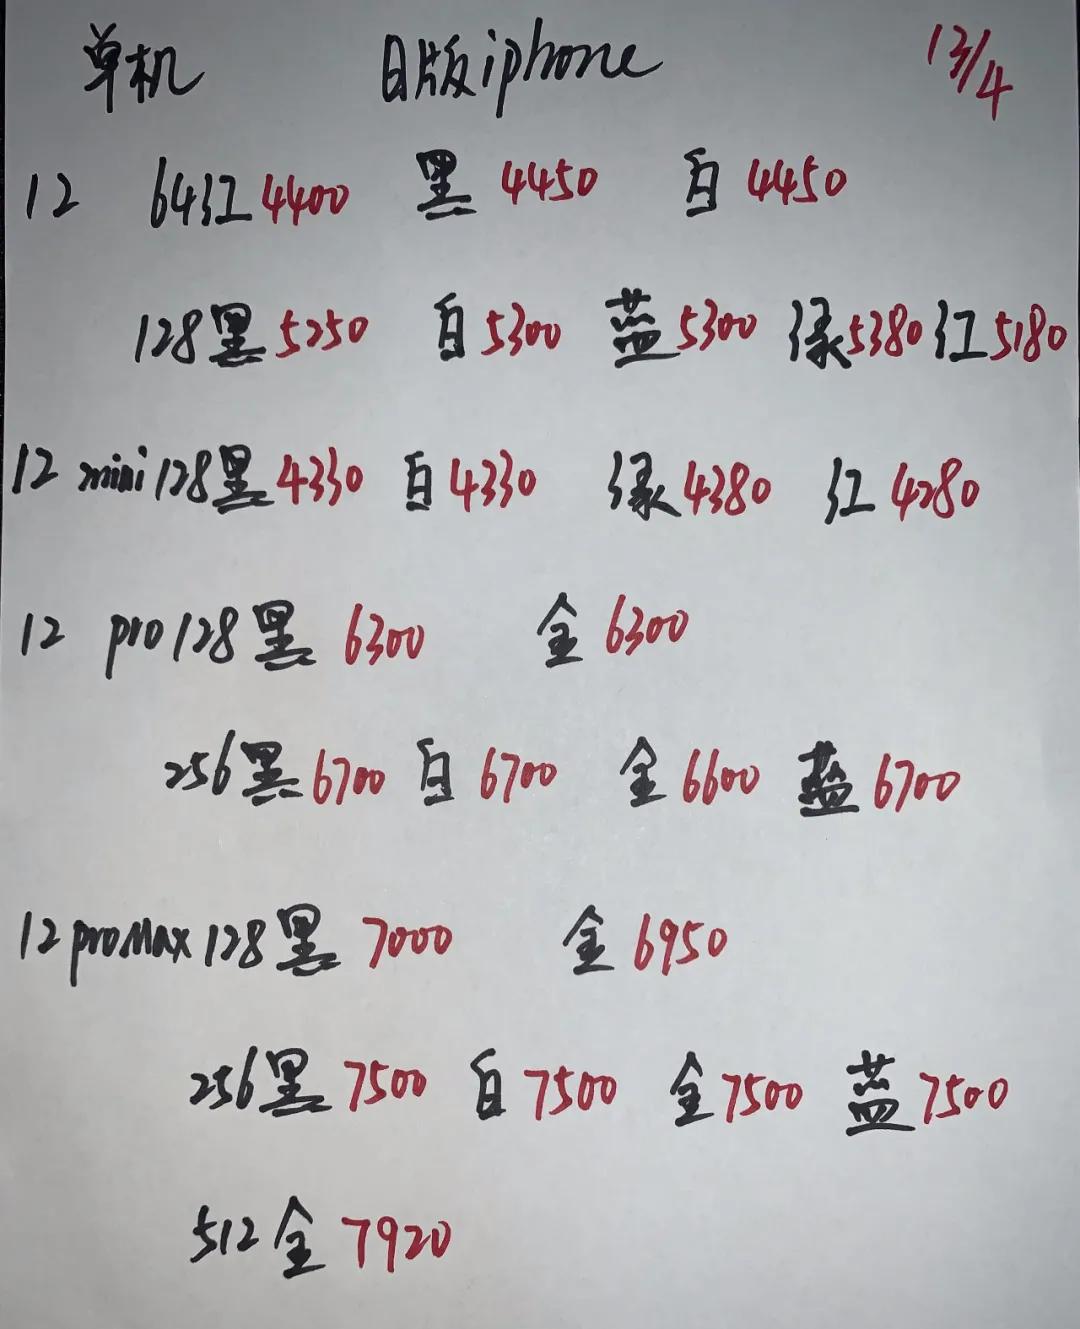 单机 日版iphone 13/4
12 64红4400 黑4450 白4450
128黑5250 白5300 蓝5300 绿5380 红5180
12 mini 128黑4330 白4330 绿4380 红4280
12 pro 128黑 6300 金6300
256黑6700 白6700 金6600 蓝6700
12 proMax 128黑 7000 金6950
256黑7500 白7500 金7500 蓝7500
512金7920